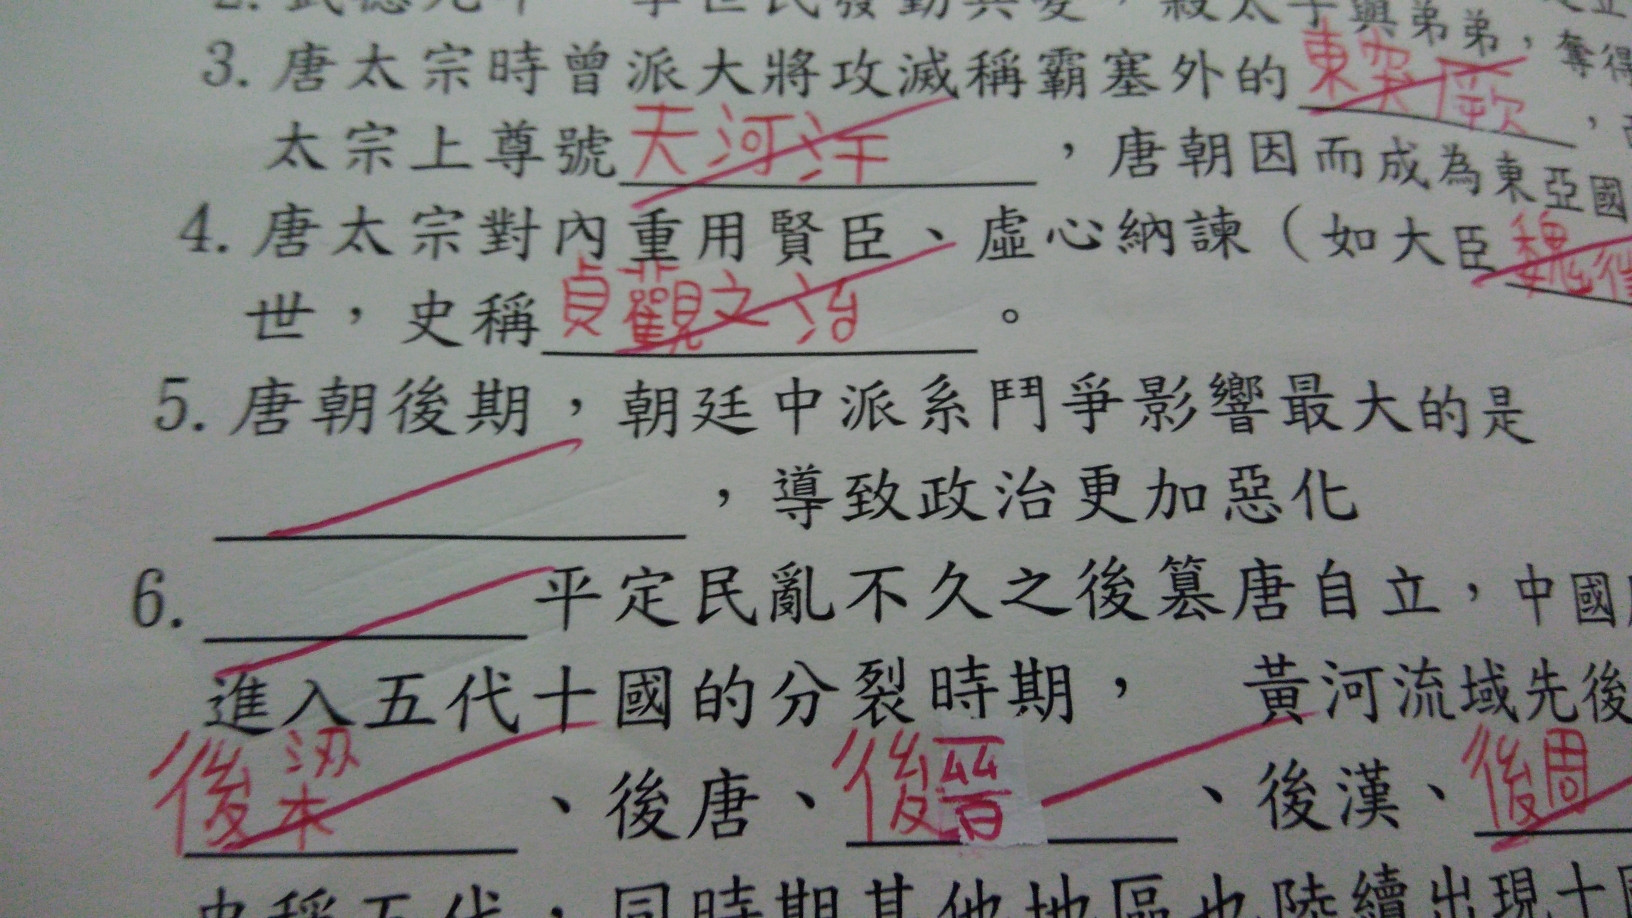 2. 武德九年，李世民發動兵變，殺太子與弟弟，奪得
3. 唐太宗時曾派大將攻滅稱霸塞外的東突厥，
太宗上尊號天河汗，唐朝因而成為東亞國
4. 唐太宗對內重用賢臣、虛心納諫（如大臣魏徵
世，史稱貞觀之治。
5. 唐朝後期，朝廷中派系鬥爭影響最大的是
，導致政治更加惡化
6. 平定民亂不久之後篡唐自立，中國
進入五代十國的分裂時期，黃河流域先後
後梁、後唐、後晉、後漢、後周
史稱五代，同時期其他地區也陸續出現十國